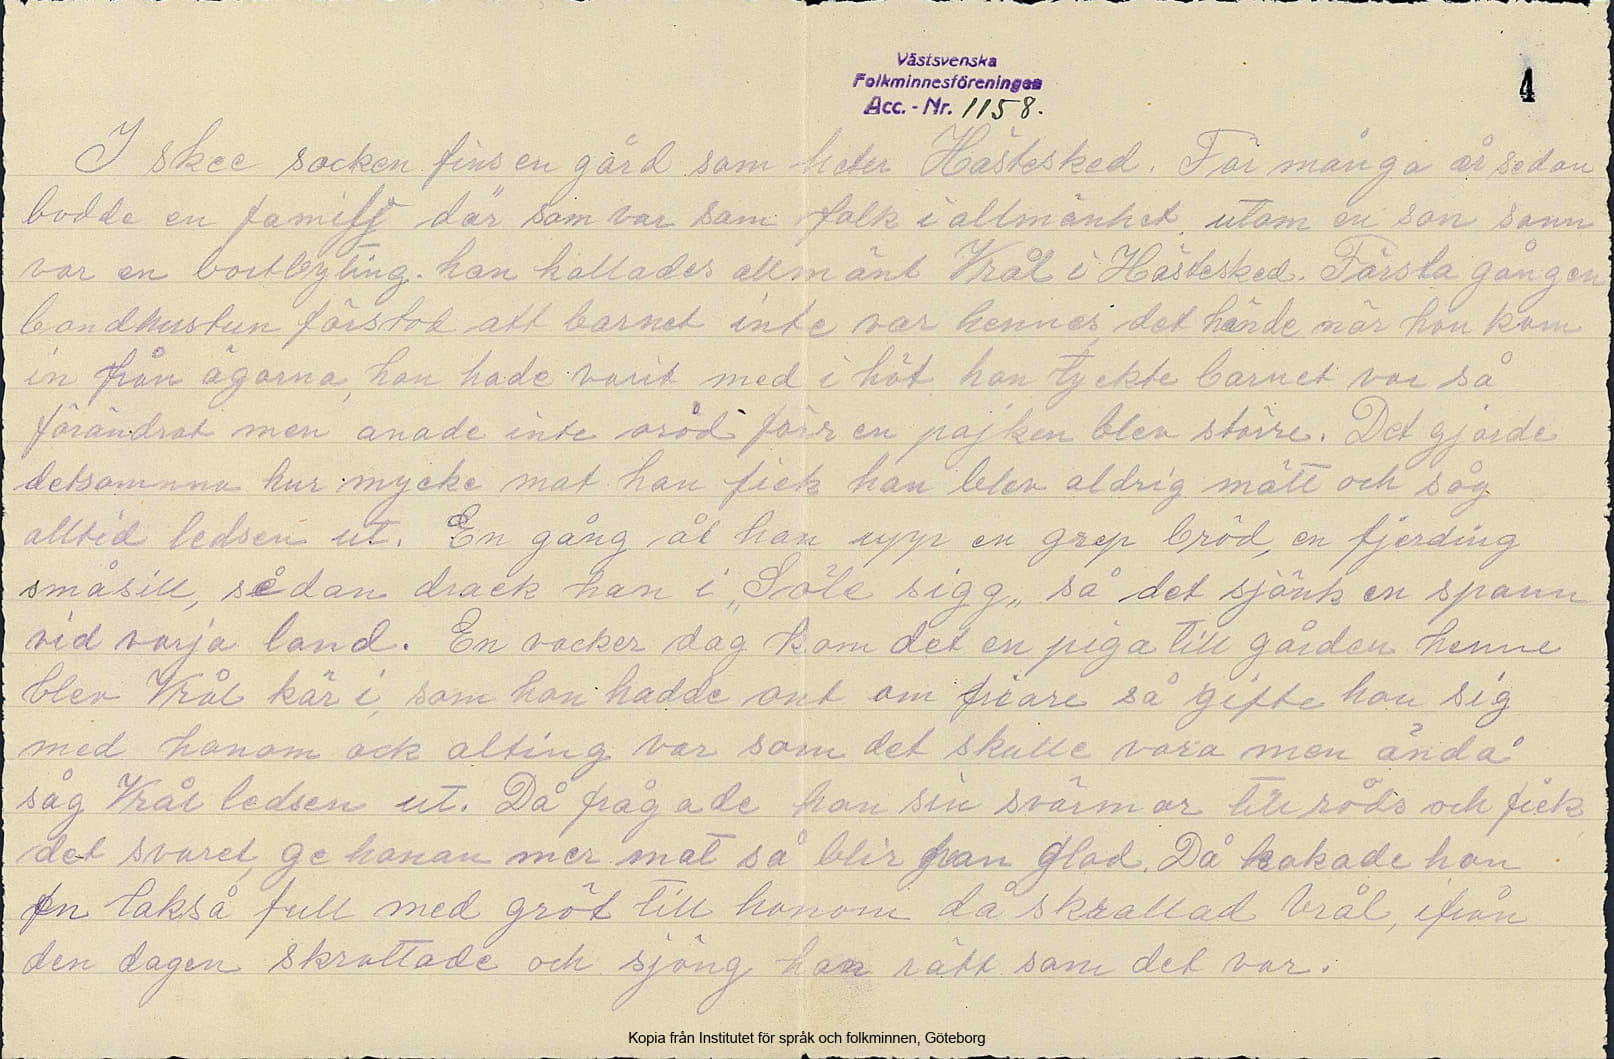 Västsvenska
Folkminnesföreningen
Acc. - Nr. 1158.
4
I skee socken fins en gård som heter Hästesked. För många år sedan
bodde en familj där som var som folk i allmänhet, utom en son somm
var en bortbyting. han kallades allmänt Vrål i Hästesked. Första gången
bondhustun förstod att barnet inte var hennes, det hände när hon kom
in från ägorna, hon hade varit med i höt hon tyckte barnet var så
förändrat men anade inte oråd förr en pojken blev större. Det gjorde
detsamma hur mycke mat han fick han blev aldrig mätt och såg
alltid ledsen ut. En gång åt han upp en grep bröd, en fjerding
småsill, sedan drack han i „Söle sigg„ så det sjönk en spann
vid varja land. En vacker dag kom det en piga till gården henne
blev Vrål kär i, som hon hadde ont om friare så gifte hon sig
med honom ock alting var som det skulle vara men ändå
såg Vrål ledsen ut. Då frågade hon sin svärmor till råds och fick
det svaret, ge honan mer mat så blir han glad. Då kokade hon
en takså full med gröt till honom då skrattad Vrål, ifrån
den dagen skrattade och sjöng han rätt som det var.
Kopia från Institutet för språk och folkminnen, Göteborg